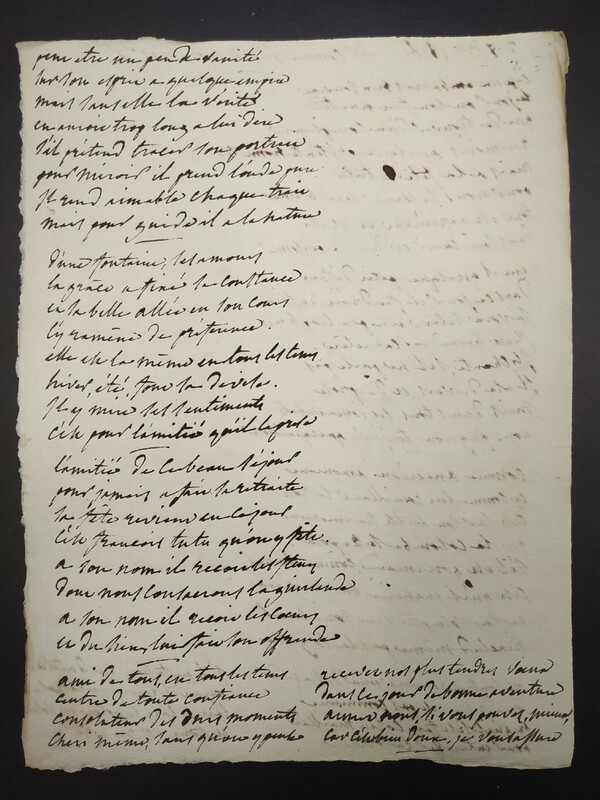 peut etre un peu de vanité
sur son esprit a quelque empire
mais sans elle la verité
en auroit trop long a lui dire
s'il pretend tracer son portrait
pour miroir il prend l'onde pure
Il rend aimable chaque trait
mais pour guide il a la nature
d'une fontaine, les amours
la grace a fixé la constance
et la belle allée en son cours
l'y ramène de préférence.
elle est la même en tous les tems
hiver, été,
Il y mire ses sentiments
C'est pour l'amitié qu'il
l'amitié de ce beau séjour
pour jamais a fait sa retraite
la fête revient en ce jour
C'est françois qu'on y fête.
a son nom il reçoit les fleurs
dont nous consacrons la guirlande
a son nom il reçoit les coeurs
et du sien, lui fait son offrande
ami de tous en tous les tems
centre de toute confiance
consolateur des durs moments
cheri même, sans qu'on y pense
recevez nos plus tendres voeux
dans ce jour de bonne aventure
aimez nous, si vous pouvez, mieux,
car c'est bien doux, je vous assure